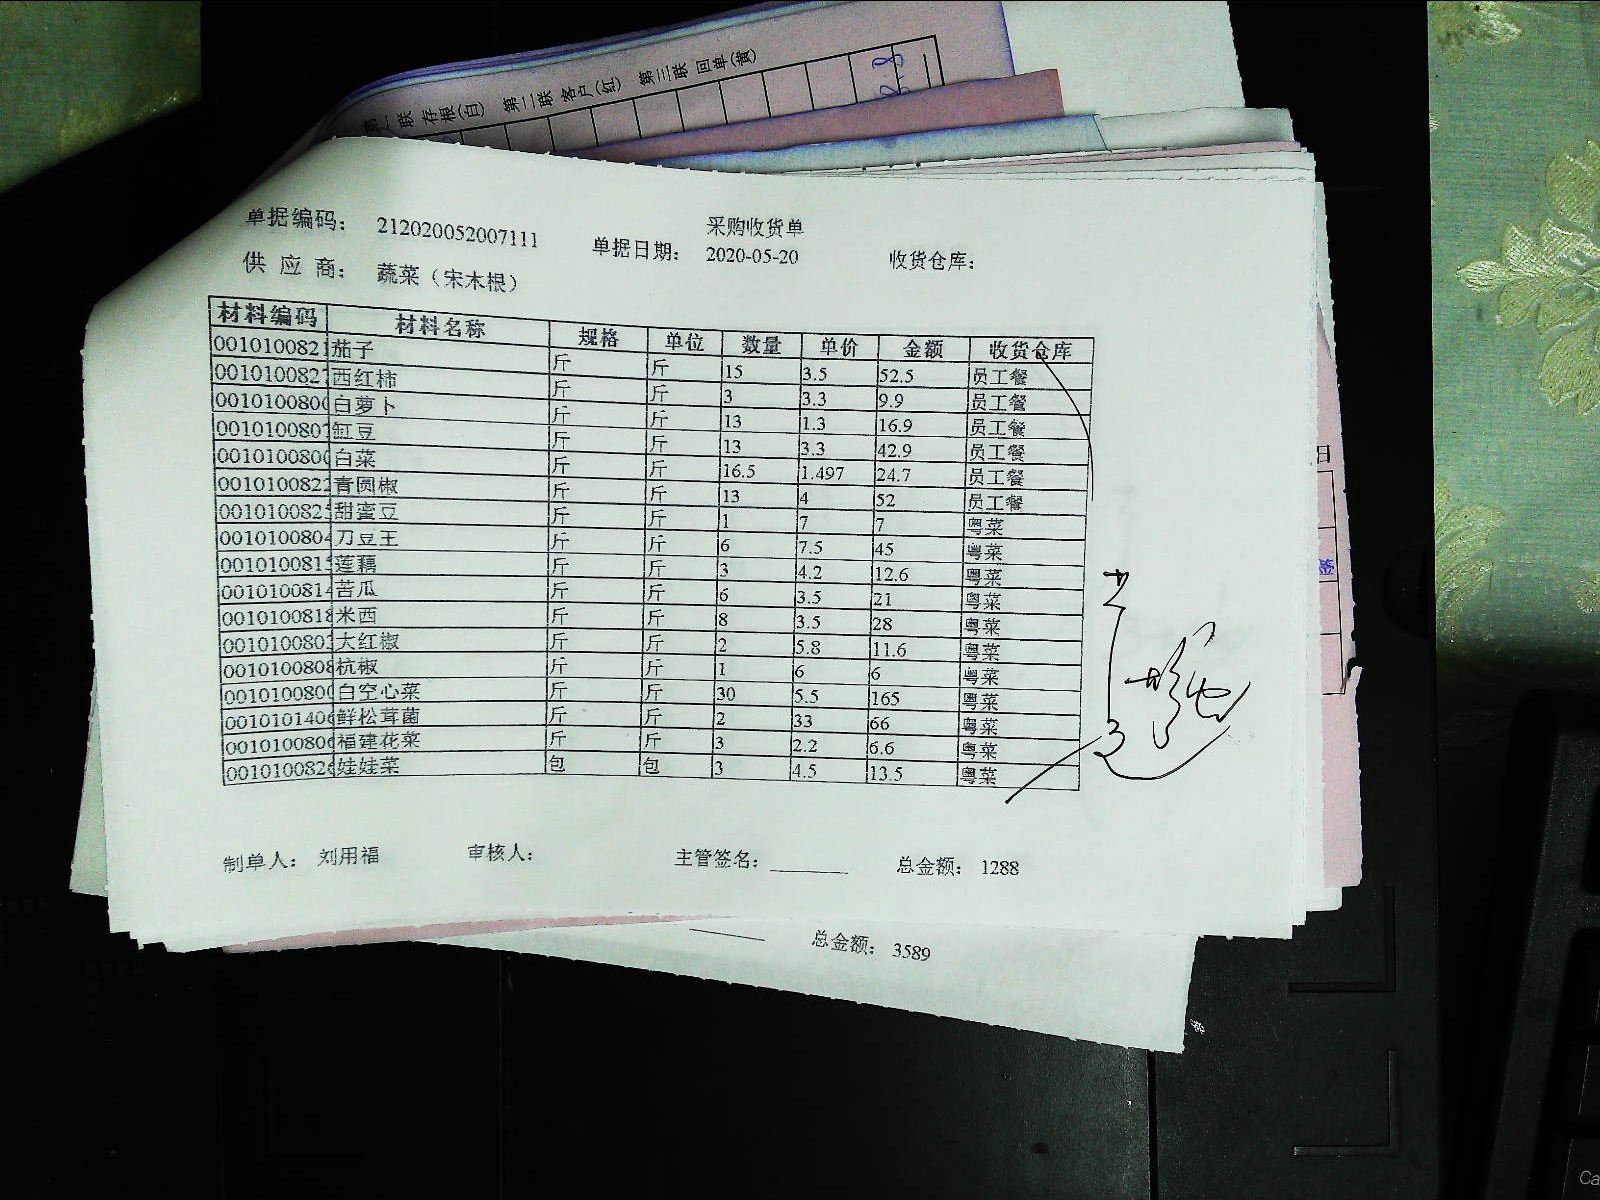 第二联 客户(红) 第三联 回单(黄)
联 存根(白)
采购收货单
单据编码: 212020052007111 单据日期: 2020-05-20 收货仓库:
供 应 商: 蔬菜（宋木根）
材料编码 材料名称 规格 单位 数量 单价 金额 收货仓库
0010100821 茄子 斤 斤 15 3.5 52.5 员工餐
001010082 西红柿 斤 斤 3 3.3 9.9 员工餐
001010080 白萝卜 斤 斤 13 1.3 16.9 员工餐
001010080 缸豆 斤 斤 13 3.3 42.9 员工餐
001010080 白菜 斤 斤 16.5 1.497 24.7 员工餐
001010082 青圆椒 斤 斤 13 4 52 员工餐
001010082 甜蜜豆 斤 斤 1 7 7 粤菜
0010100804 刀豆王 斤 斤 6 7.5 45 粤菜
001010081 莲藕 斤 斤 3 4.2 12.6 粤菜
0010100814 苦瓜 斤 斤 6 3.5 21 粤菜
0010100818 米西 斤 斤 8 3.5 28 粤菜
001010080 大红椒 斤 斤 2 5.8 11.6 粤菜
0010100808 杭椒 斤 斤 1 6 6 粤菜
001010080 白空心菜 斤 斤 30 5.5 165 粤菜
001010140 鲜松茸菌 斤 斤 2 33 66 粤菜
001010080 福建花菜 斤 斤 3 2.2 6.6 粤菜
001010082 娃娃菜 包 包 3 4.5 13.5 粤菜
制单人: 刘用福 审核人: 主管签名: 总金额: 1288
总金额: 3589
日
Ca